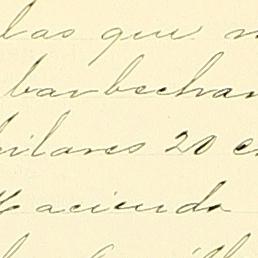 las que
barbechar
ilares 20 e
Hacienda